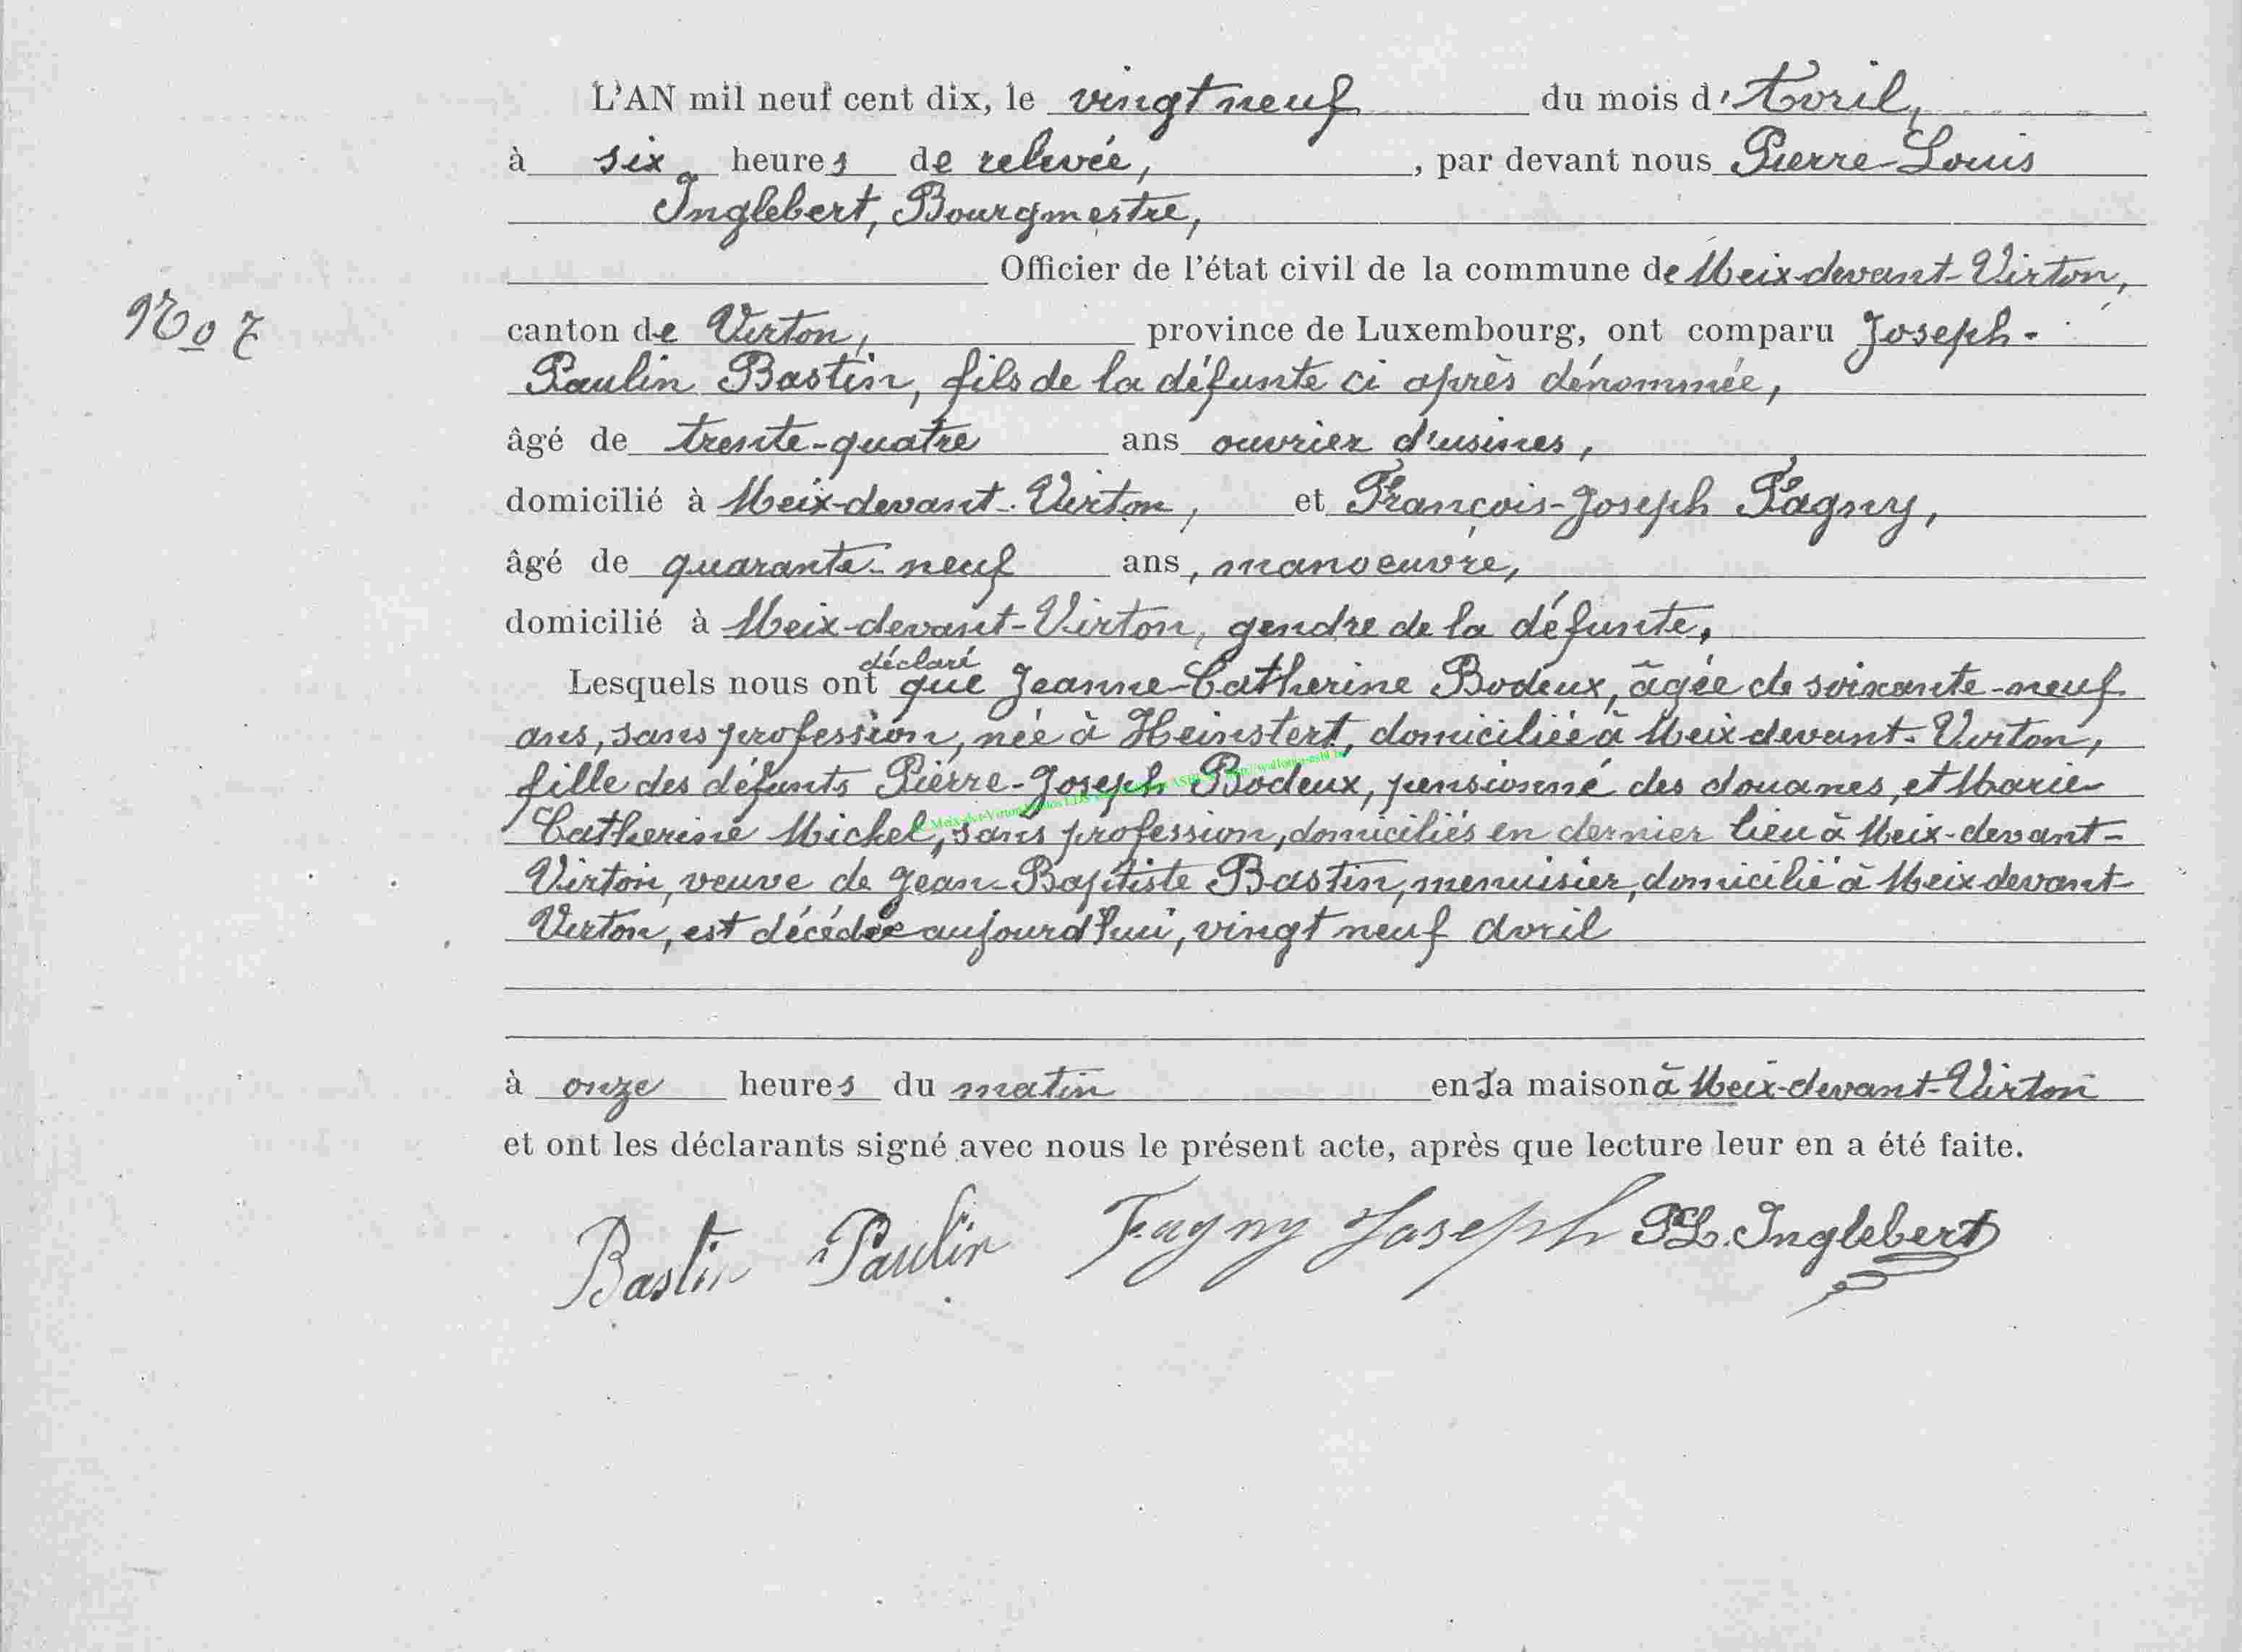 L'AN mil neuf cent dix, le vingt neuf du mois d'Avril,
à six heures de relevée, , par devant nous Pierre-Louis
Inglebert, Bourgmestre,
Officier de l'état civil de la commune de Meix-devant-Virton,
No 7
canton de Virton, province de Luxembourg, ont comparu Joseph-
Paulin Bastin, fils de la défunte ci après dénommée,
âgé de trente-quatre ans ouvrier d'usines,
domicilié à Meix-devant-Virton, et François-Joseph Fagny,
âgé de quarante-neuf ans, manoeuvre,
domicilié à Meix-devant-Virton, gendre de la défunte,
déclaré
Lesquels nous ont que Jeanne-Catherine Bodeux, âgée de soixante-neuf
ans, sans profession, née à Heinstert, domiciliée à Meix-devant-Virton,
fille des défunts Pierre-Joseph Bodeux, pensionné des douanes, et Marie-
Catherine Michel, sans profession, domiciliés en dernier lieu à Meix-devant-
Virton, veuve de Jean-Baptiste Bastin, menuisier, domicilié à Meix-devant-
Virton, est décédée aujourd'hui, vingt neuf avril
à onze heures du matin en la maison à Meix-devant-Virton
et ont les déclarants signé avec nous le présent acte, après que lecture leur en a été faite.
Bastin Paulin Fagny Joseph PL. Inglebert